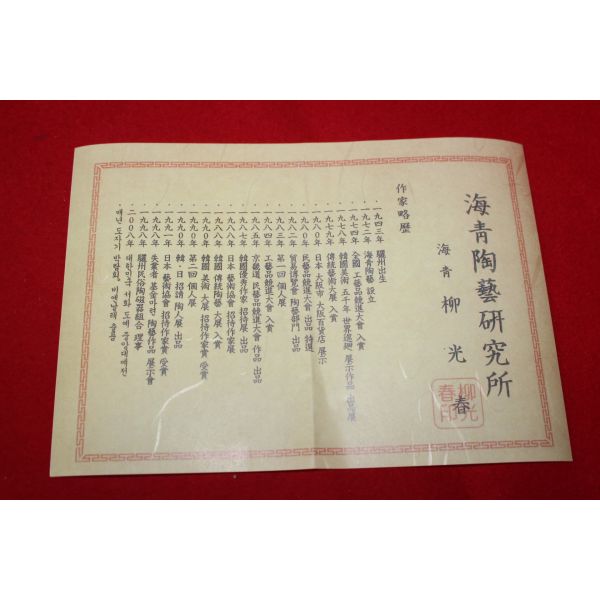 海青陶藝硏究所
海青 柳光春
柳光春印
作家略歷
· 一九四三年 驪州出生
· 一九七二年 海青陶藝 設立
· 一九七四年 全國 工藝品競進大會 入賞
· 一九七八年 韓國美術 五千年 世界巡廻 展示作品 出品展
· 一九七九年 傳統藝術大展 入賞
· 一九八〇年 日本 大阪市 大阪百貨店 展示
· 一九八〇年 民藝品競進大會 出品 特選
· 一九八二年 貿易博覽會 陶藝部門 出品
· 一九八三年 第一回 個人展
· 一九八四年 工藝品競進大會 入賞
· 一九八五年 京畿道 民藝品競進大會 作品 出品
· 一九八七年 韓國優秀作家 招待展 出品
· 一九八八年 日本 藝術協會 招待作家展
· 一九八八年 韓國 傳統陶藝 大展 入賞
· 一九九〇年 韓國 美術 大展 招待作家賞 受賞
· 一九九〇年 第二回 個人展
· 一九九一年 韓·日 招請 陶人展 出品
· 一九九二年 日本 藝術協會 招待作家賞 受賞
· 一九九八年 失業者 基金마련 陶藝作品 展示會
· 一九九八年 驪州民俗陶磁器組合 理事
· 二〇〇八年 대한민국 서화 도예 중앙대예전
· 매년 도자기 박람회, 비엔날레 출품